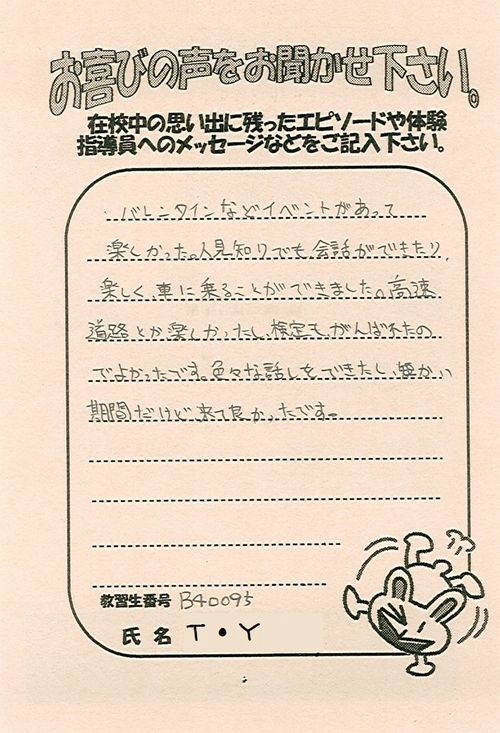 お喜びの声をお聞かせ下さい。
在校中の思い出に残ったエピソードや体験
指導員へのメッセージなどをご記入下さい。
バレンタインなどイベントがあって
楽しかった。人見知りでも、会話ができたり、
楽しく、車に乗ることができました。高速
道路とか楽しかったし、検定もがんばれたの
でよかったです。色々な話しもできたし、短かい
期間だけど来て良かったです。
教習生番号 B40095
氏名 T・Y